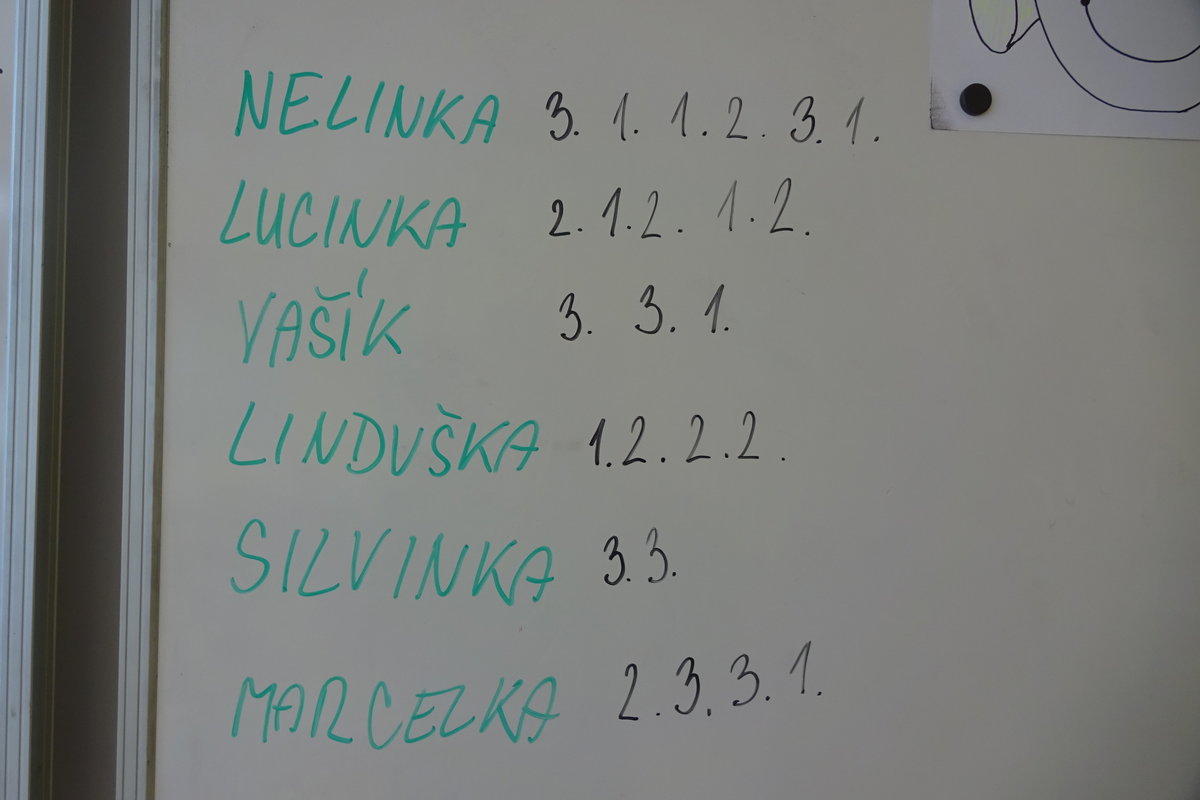 NELINKA 3. 1. 1. 2. 3. 1.
LUCINKA 2. 1. 2. 1. 2.
VAŠÍK 3. 3. 1.
LINDUŠKA 1. 2. 2. 2.
SILVINKA 3. 3.
MARCELKA 2. 3. 3. 1.